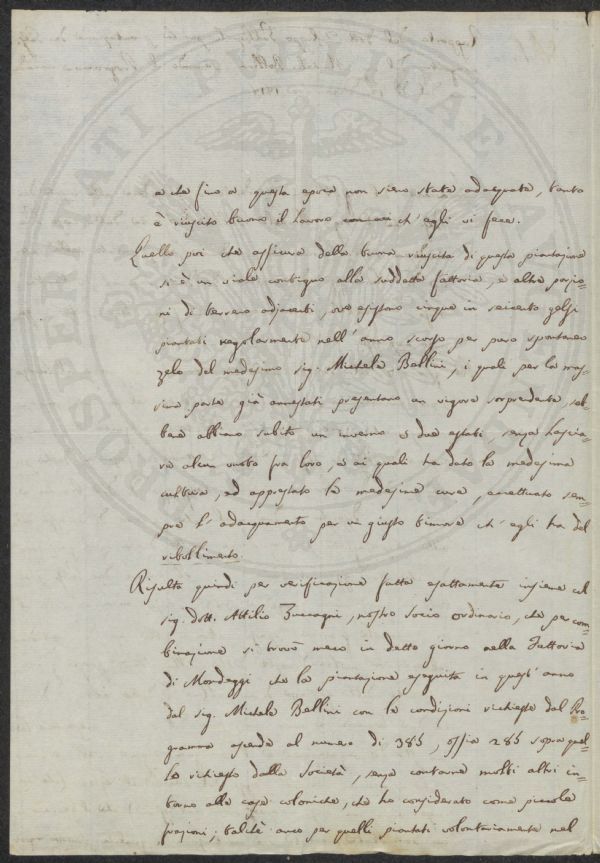 e che fino a questa epoca non sieno state adacquate, tanto
è riuscito buono il lavoro ch'egli vi fece.
Quello poi che assicura della buona riuscita di questa piantazione
si è un viale contiguo alla suddetta fattoria, e altre porzio=
ni di terreno adjacenti, ove esistono cinque in seicento gelsi
piantati regolarmente nell'anno scorso per puro spontaneo
zelo del medesimo sig. Michele Bellini, i quali per la mas=
sima parte già annestati presentano un vigore sorprendente seb=
bene abbiano subito un inverno e due estati, senza lascia=
re alcun vuoto fra loro, e ai quali ha dato la medesima
cultura, ed apprestato le medesime cure, eccettuato sem=
pre l'adacquamento per un giusto timore ch'egli ha del
ribollimento.
Risulta quindi per verificazione fatta esattamente insieme col
sig. dott. Attilio Zuccagni, nostro socio ordinario, che per com=
binazione si trovò meco in detto giorno nella Fattoria
di Mondeggi che la piantazione eseguita in quest'anno
dal sig. Michele Bellini con le condizioni richieste dal Pro=
gramma ascende al numero di 385, ossia 285 sopra quel=
lo richiesto dalla Società, senza contarne molti altri in=
torno alle case coloniche, che ha considerato come piccole
frazioni; talchè anco per quelli piantati volontariamente nel
PROSPERITATI PUBLICAE